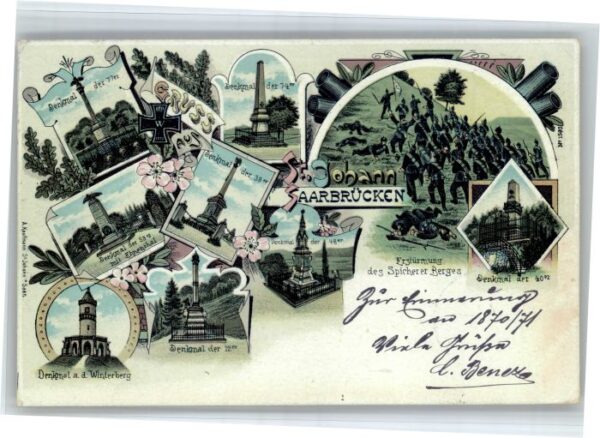 Denkmal der 77er
GRUSS
AUS
W
Denkmal der 74er
St. Johann
SAARBRÜCKEN
Denkmal der 39er
Denkmal der
mit Ehrenthal
Denkmal der 48er
Erstürmung
des Spicherer Berges
Denkmal der 40er
Denkmal a. d. Winterberg
Denkmal der 12er
A. Kaufmann, St. Johann a/Saar.
Zur Erinnerung
an 1870/71
Viele Grüße